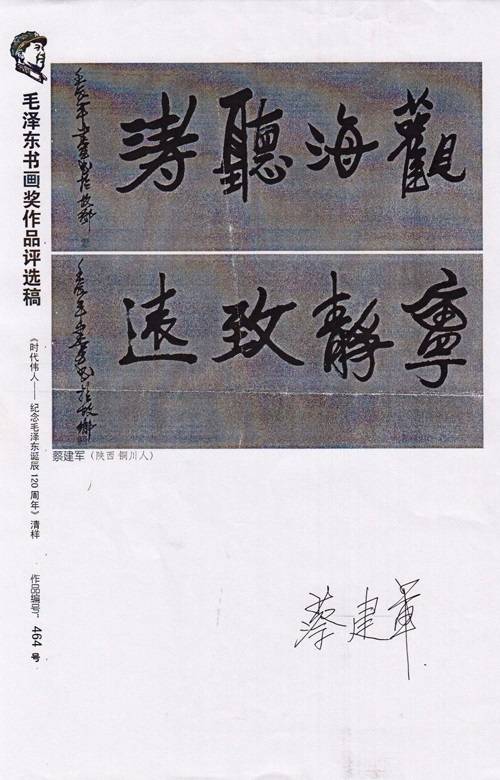 毛泽东书画奖作品评选稿
《时代伟人——纪念毛泽东诞辰 120 周年》清样
作品编号: 464 号
觀海聽涛
壬辰年
寧靜致遠
壬辰年
蔡建军（陕西 铜川人）
蔡建军